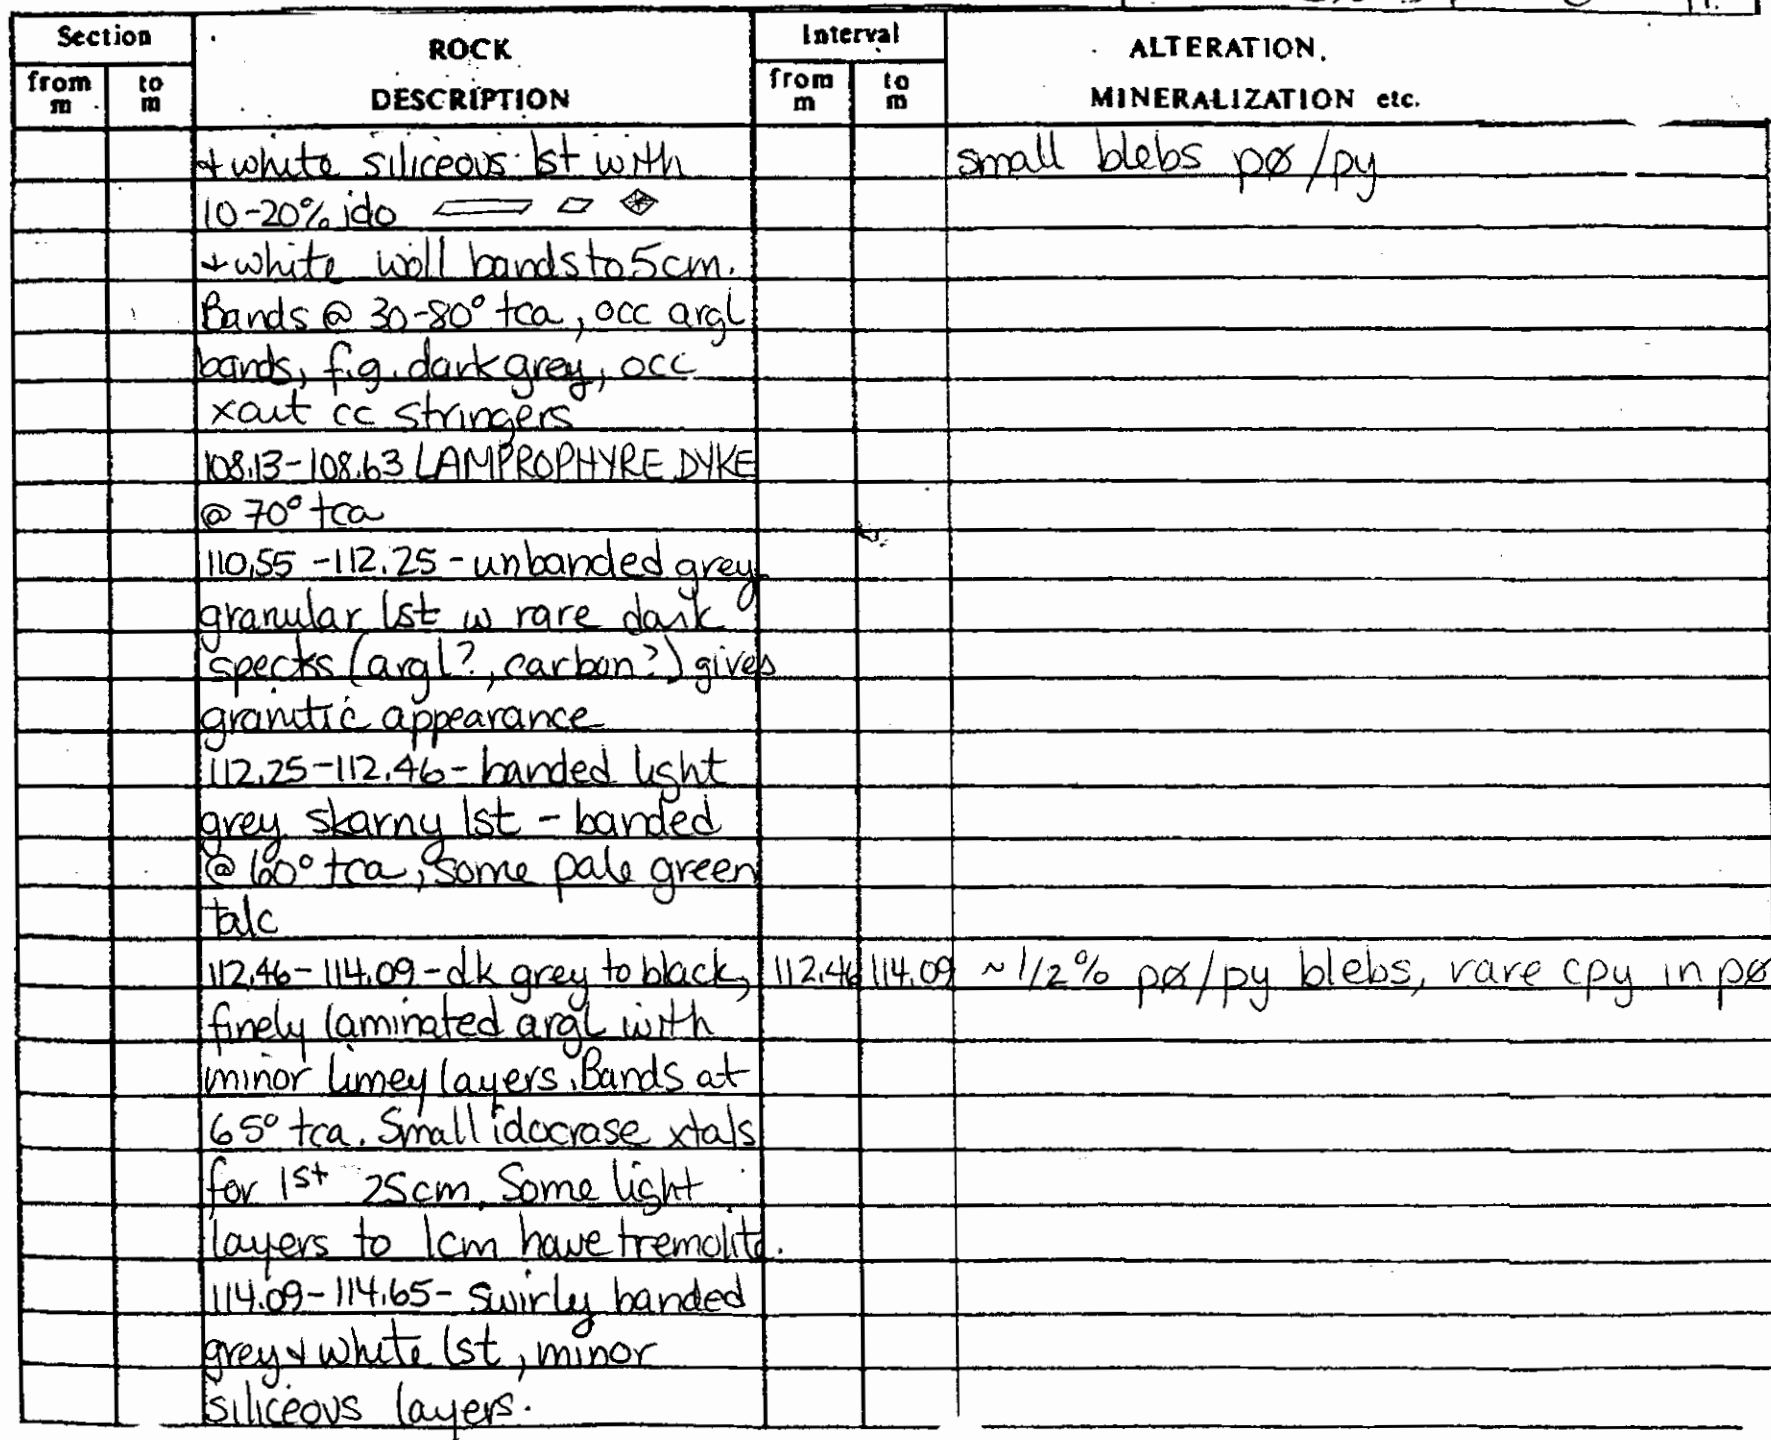 Section ROCK Interval ALTERATION,
from to DESCRIPTION from to MINERALIZATION etc.
m m m m
+ white siliceous lst with small blebs pø/py
10-20% ido
+ white woll bands to 5cm.
Bands @ 30-80° tca, occ argl
bands, f.g. dark grey, occ
xcut cc stringers
108.13-108.63 LAMPROPHYRE DYKE
@ 70° tca
110.55 - 112.25 - unbanded grey
granular lst w rare dark
specks (argl?, carbon?) gives
granitic appearance
112.25-112.46- banded light
grey skarny lst - banded
@ 60° tca, some pale green
talc
112.46-114.09-dk grey to black, 112.46 114.09 ~1/2% pø/py blebs, rare cpy in pø
finely laminated argl with
minor limey layers. Bands at
65° tca. Small idocrase xtals
for 1st 25cm. Some light
layers to 1cm have tremolite.
114.09-114.65- swirly banded
grey + white lst, minor
siliceous layers.